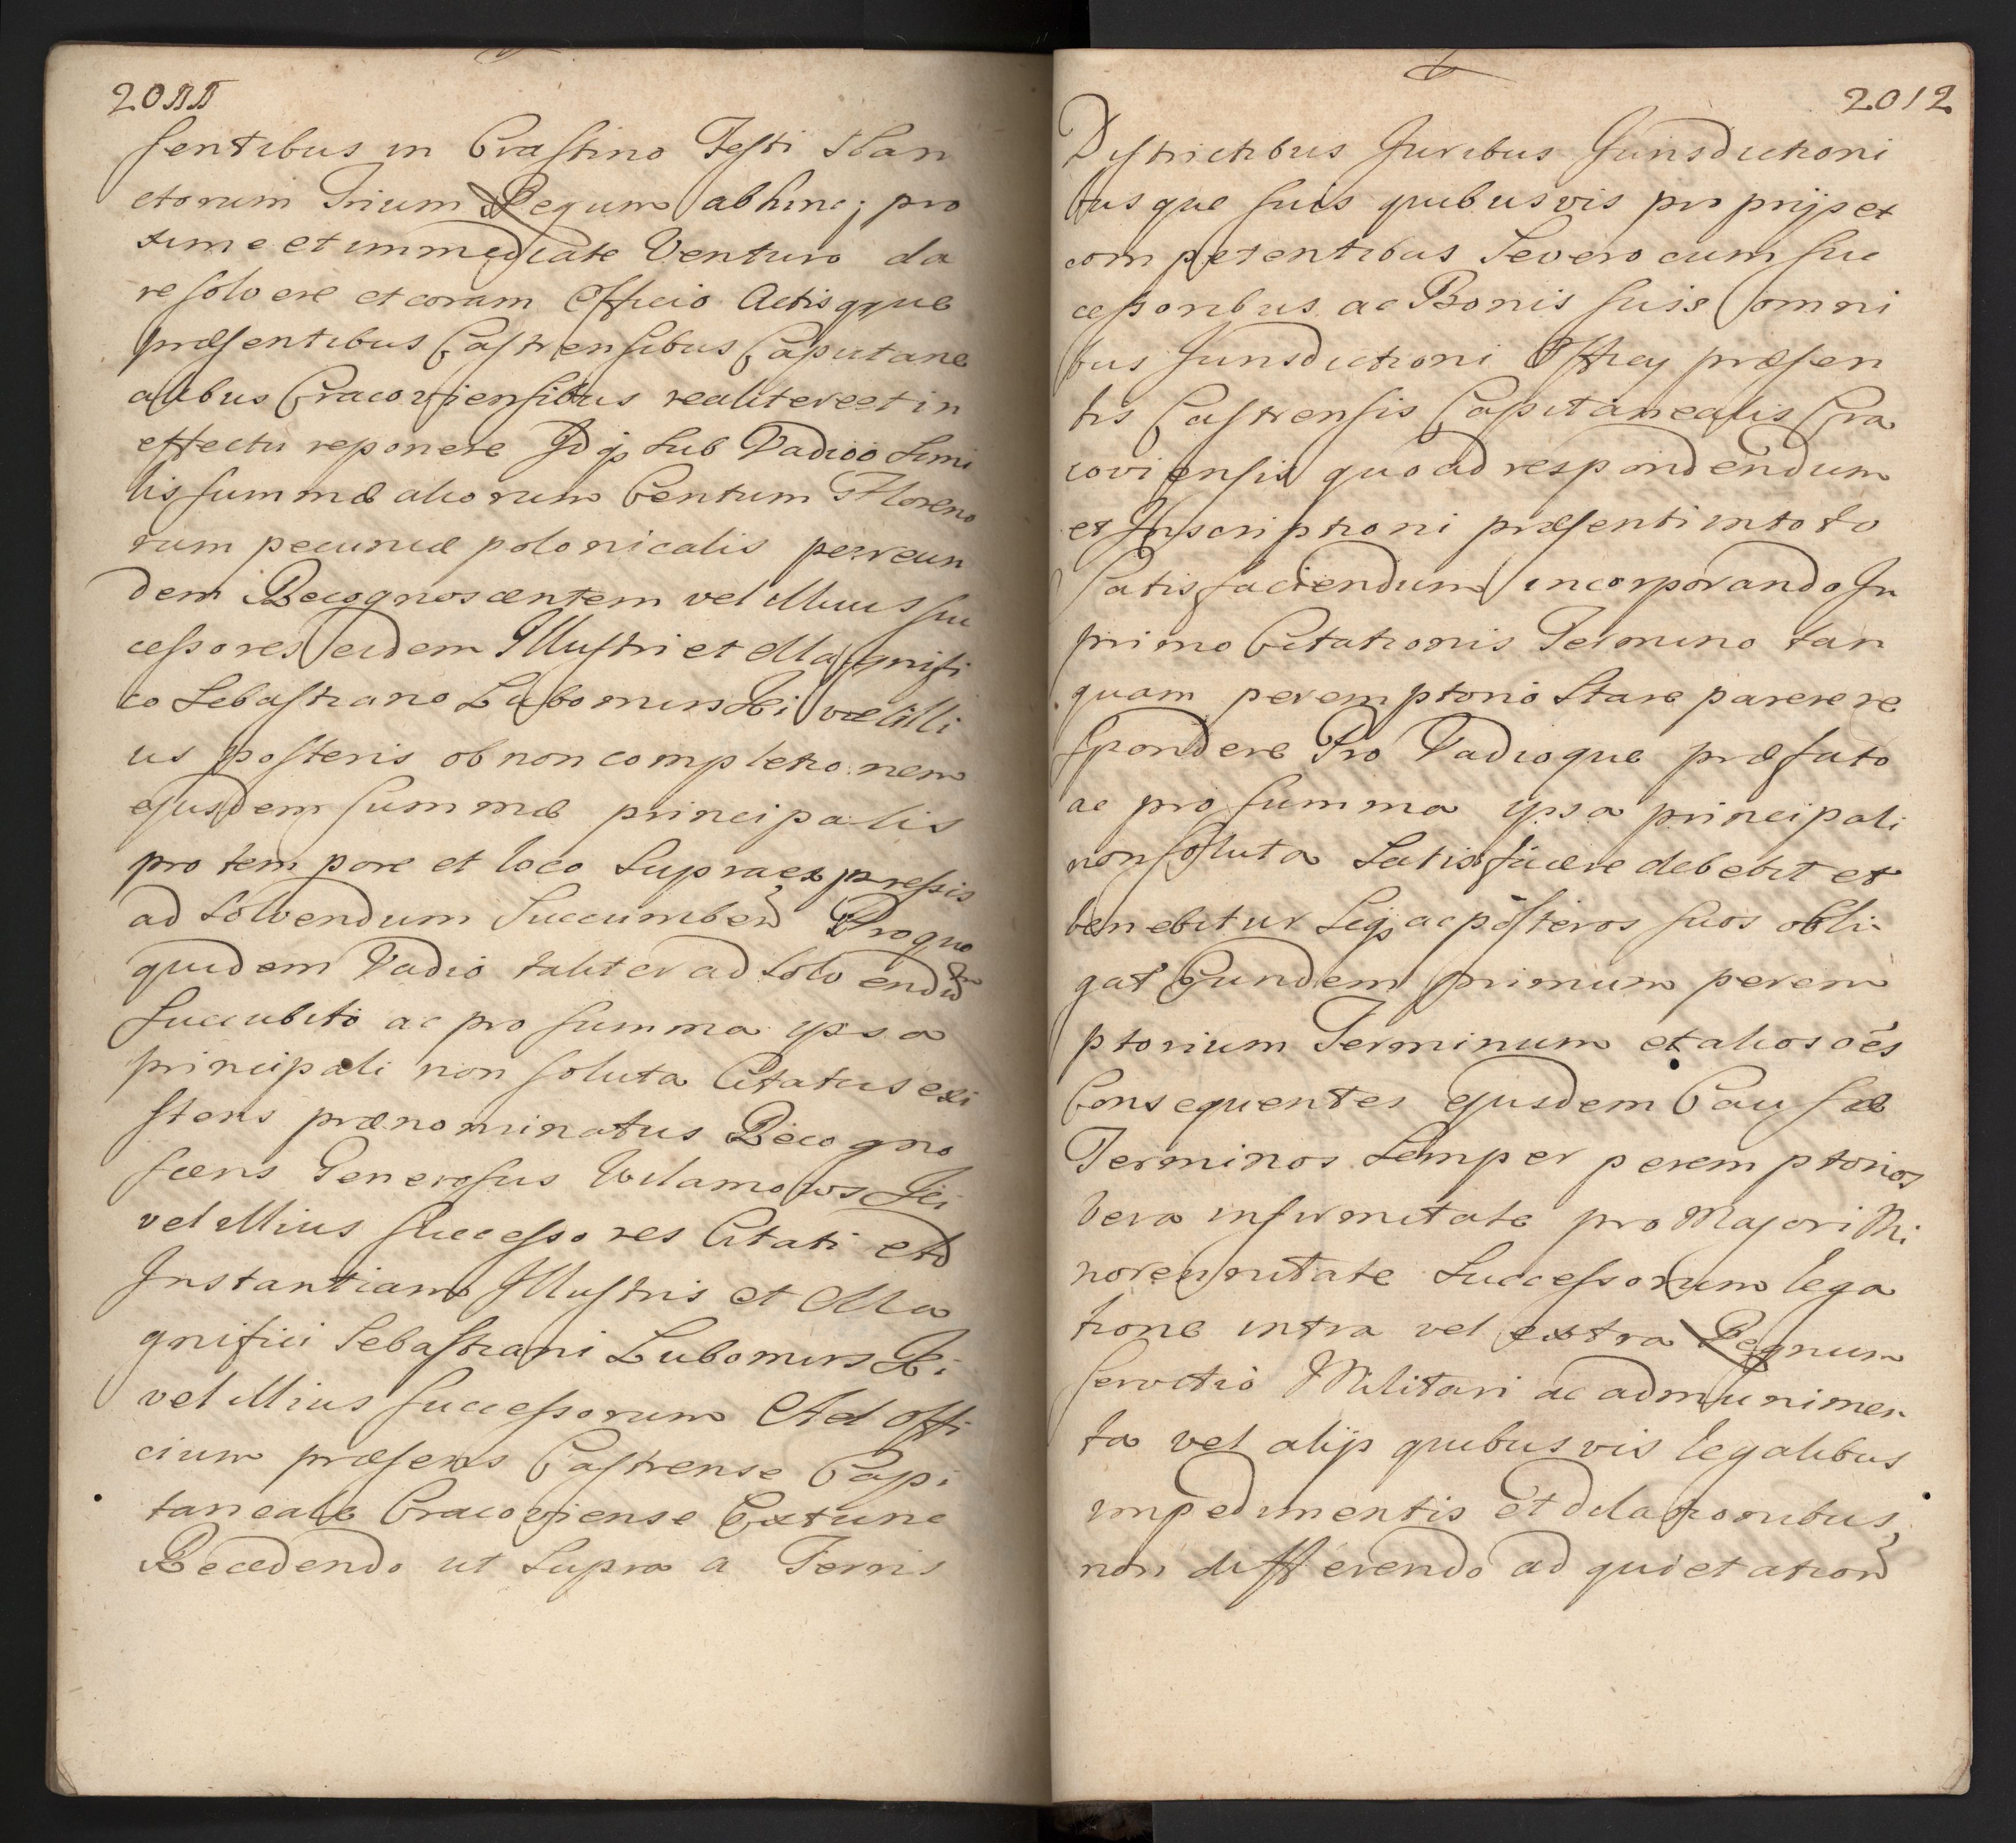 2011
sentibus in Crastino Festi San
ctorum Trium Regum abhinc; pro
xime et immediate Venturo da
re solvere et coram Officio Actisqque
præsentibus Castrensibus Capitane
alibus Cracoviensibus realiter et in
effectu reponere Idqꝫ sub Vadio Simi
lis summæ aliorum Centum Floreno
rum pecuniæ polonicalis per eun
dem Recognoscentem vel illius suc
cessores eidem Illustri et Magnifi
co Sebastiano Lubomirski vel illi
us posteris ob non completionem
ejusdem summæ principalis
pro tempore et loco Supra expressis
ad Solvendum Succumbend Pro quo
quidem Vadio taliter ad Solvendum
Succubito ac pro summa ipsa
principali non soluta Citatus exi
stens prænominatus Recogno
scens Generosus Wilamowski
vel illius Successores Citati ad
Instantiam Illustris et Ma
gnifici Sebastiani Lubomirski
vel illius Successorum Ad Offi
cium præsens Castrense Capi
taneale Cracoviense Extunc
Recedendo ut Supra a Terris
2012
Districtibus Juribus Jurisdictioni
busque suis quibusvis proprijs et
competentibus Severo cum suc
cessoribus ac Bonis suis omni
bus Jurisdictioni Officij præsen
tis Castrensis Capitanealis Cra
coviensis quo ad respondendum
et Inscriptioni præsenti in toto
Satisfaciendum incorporando In
primo Citationis Termino tan
quam peremptorio Stare parere re
spondere Pro Vadioque præfato
ac pro summa ipsa principali
non soluta Satisfacere debebit et
tenebitur Seqꝫ ac posteros suos obli-
gat Eundem primum perem
ptorium Terminum et alios oēs
Consequentes ejusdem Causæ
Terminos Semper peremptorios
Vera infirmitate pro Majori Mi
norennitate Successorum lega
tione intra vel extra Regnum
Servitio Militari ac ad munimen
ta vel alijs quibusvis legalibus
impedimentis et dilationibus,
non differendo ad quietation